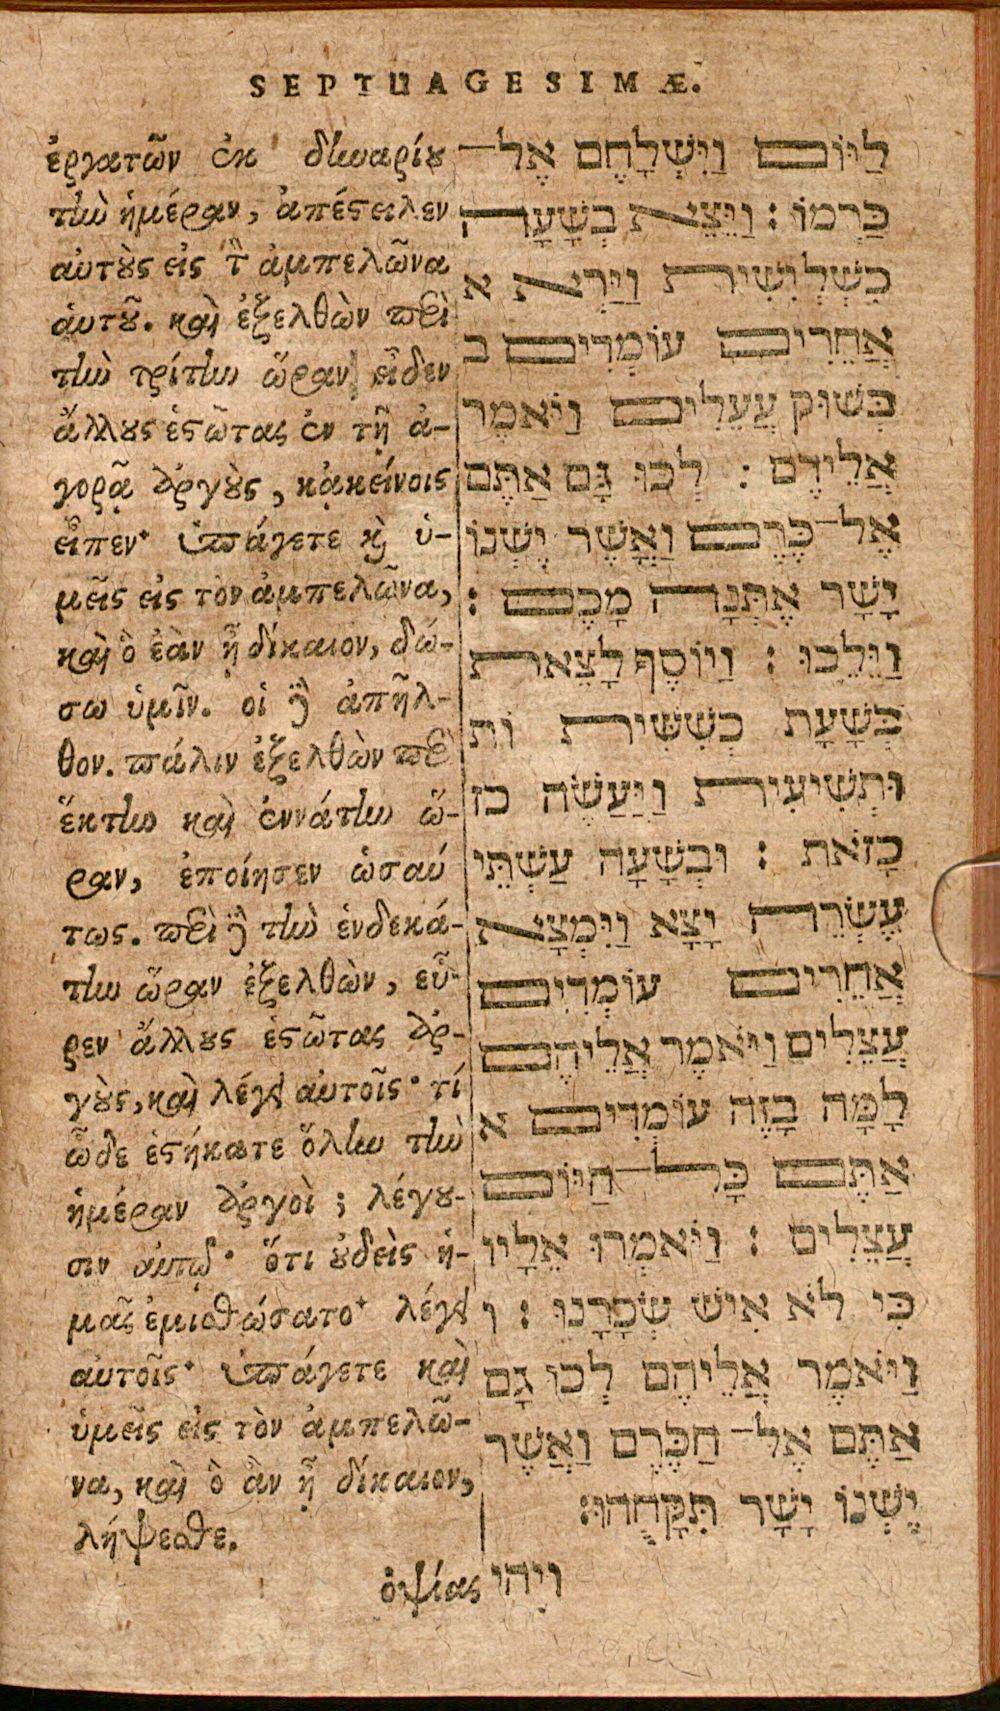 SEPTUAGESIMÆ.
ἐργατῶν ἐκ δίωαρίου
τὴν ἡμέραν, ἀπέστειλεν
αὐτοὺς εἰς τὸν ἀμπελῶνα
αὑτοῦ. καὶ ἐξελθὼν περὶ
τὴν τρίτην ὥραν εἶδεν
ἄλλους ἑστῶτας ἐν τῇ ἀ-
γορᾷ ἀργοὺς, κᾀκείνοις
εἶπεν· ὑπάγετε καὶ ὑ-
μεῖς εἰς τὸν ἀμπελῶνα,
καὶ ὃ ἐὰν ᾖ δίκαιον, δώ-
σω ὑμῖν. οἱ δὲ ἀπῆλ-
θον. πάλιν ἐξελθὼν περὶ
ἕκτην καὶ ἐννάτην ὥ-
ραν, ἐποίησεν ὡσαύ
τως. περὶ δὲ τὴν ἑνδεκά-
την ὥραν ἐξελθὼν, εὗ-
ρεν ἄλλους ἑστῶτας ἀρ-
γοὺς, καὶ λέγει αὐτοῖς· τί
ὧδε ἑστήκατε ὅλην τὴν
ἡμέραν ἀργοὶ; λέγου-
σιν αὐτῷ· ὅτι οὐδεὶς ἡ-
μᾶς ἐμισθώσατο· λέγει
αὐτοῖς· ὑπάγετε καὶ
ὑμεῖς εἰς τὸν ἀμπελῶ-
να, καὶ ὃ ἂν ᾖ δίκαιον,
λήψεσθε.
ὀψίας
לַיּוֹם וַיִּשְׁלָחֶם אֶל־
כַּרְמוֹ׃ וַיֵּצֵא בְשָׁעָה
כִּשְׁלִישִׁית וַיַּרְא א
אֲחֵרִים עוֹמְדִים ב
בְּשׁוּק עֲצֵלִים וַיֹּאמֶר
אֲלֵיהֶם׃ לְכוּ גָּם אַתֶּם
אֶל־כֶּרֶם וַאֲשֶׁר יֶשְׁנוֹ
יָשָׁר אֶתְּנָה מָכֶם׃
וַיֵּלֵכוּ׃ וַיּוֹסֶף לָצֵאת
בְּשָׁעָת כְּשִׁשִּׁית וֹת
וּתְשִׁיעִית וַיַּעֲשֶׂה כז
כָזֹאת׃ וּבְשָׁעָה עַשְׁתֵּי
עֶשְׂרֵה יָצָא וַיִּמְצָא
אֲחֵרִים עוֹמְדִים
עֲצֵלִים וַיֹּאמֶר אֲלֵיהֶם
לָמָּה בָזֶה עוֹמְדִים א
אַתֶּם כָּל־הַיּוֹם
עֲצֵלִים׃ וַיֹּאמְרוּ אֵלָיו
כִּי לֹא אִישׁ שְׂכָרָנוּ׃ ו
וַיֹּאמֶר אֲלֵיהֶם לְכוּ גָם
אַתֶּם אֶל־הַכֶּרֶם וַאֲשֶׁר
יֶשְׁנוֹ יָשָׁר תִּקָּחֻהוּ׃
וַיְהִי